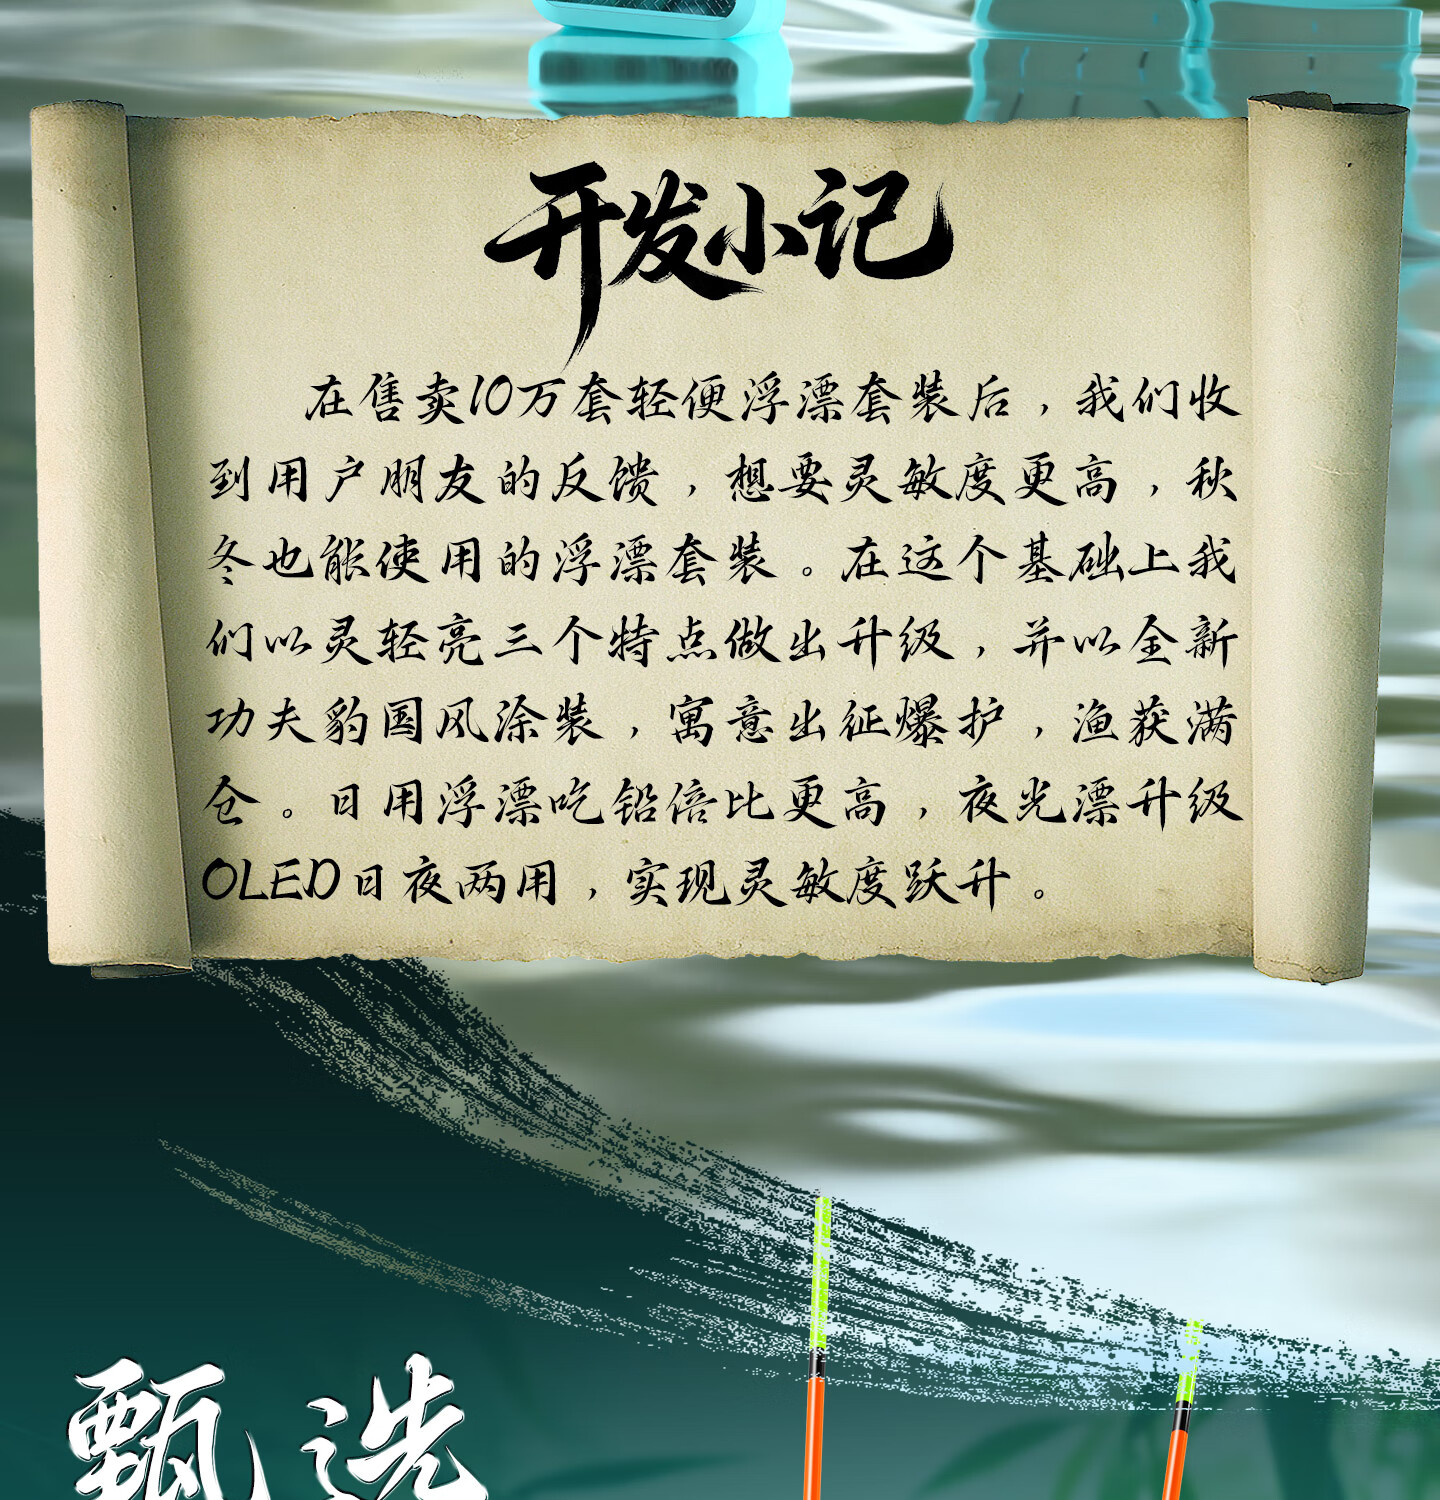 开发小记
在售卖10万套轻便浮漂套装后，我们收
到用户朋友的反馈，想要灵敏度更高，秋
冬也能使用的浮漂套装。在这个基础上我
们以灵轻亮三个特点做出升级，并以全新
功夫豹国风涂装，寓意出征爆护，渔获满
仓。日用浮漂吃铅倍比更高，夜光漂升级
OLED日夜两用，实现灵敏度跃升。
甄选